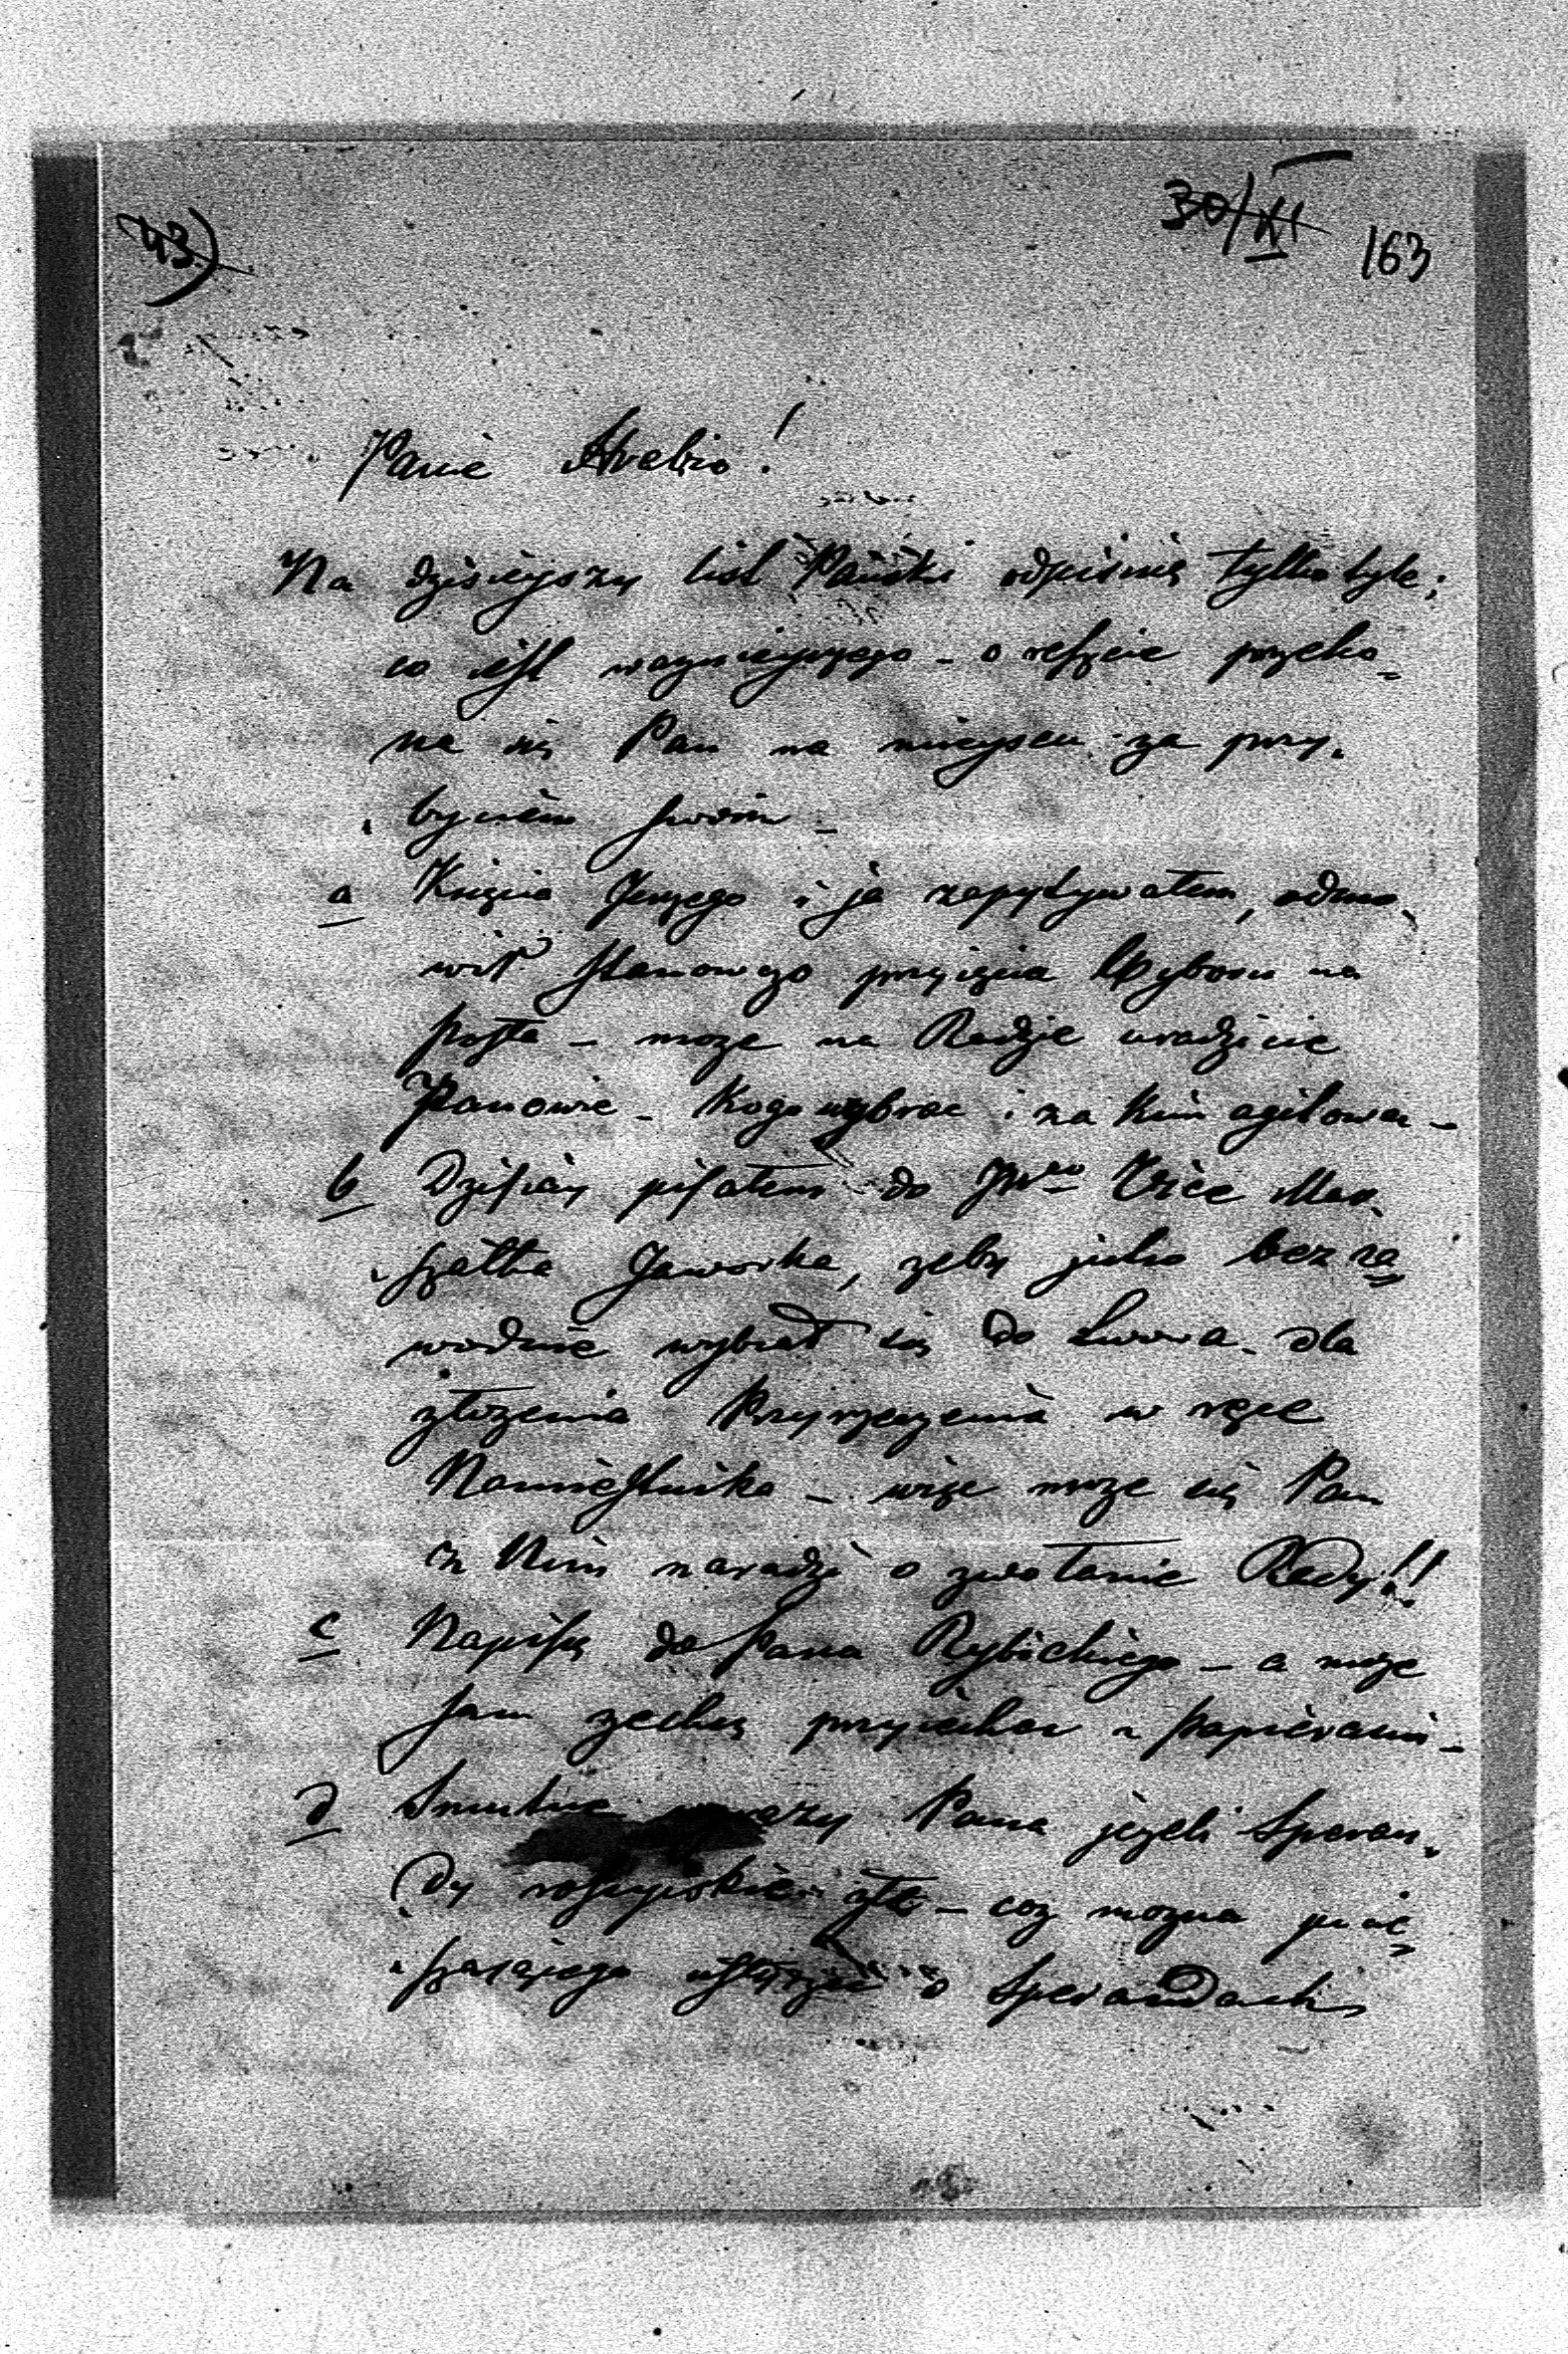 43)
30/XI
163
Panie Hrabio!
Na dzisieyszy list Pański odpisuię tylko tyle;
co iest ważnieyszego – o reszcie przeko-
na się Pan na mieyscu za przy-
byciem swoim –
a Xięcia Jerzego i ja zapytywałem, odmo-
wił stanowczo przyięcia Wyboru na
posła – może na Radzie uradzicie
Panowie – kogo wybrac i za kim agitowac –
b Dzisiay pisałem do JWgo Vice Mar-
szałka Jaworska, żeby jutro bez za
wodnie wybrał się do Lwowa – dla
złożenia Przyrzeczenia w ręce
Namiestnika – więc może się Pan
z Nim naradzi o zwołanie Rady!!
c Napiszę do Pana Rybickiego – a może
sam zechcę przyiechac z papierami –
d Smutne Pana jeżeli Speran-
dy rossyiskie złe – coż można pocie-
szaiącego o Sperandach